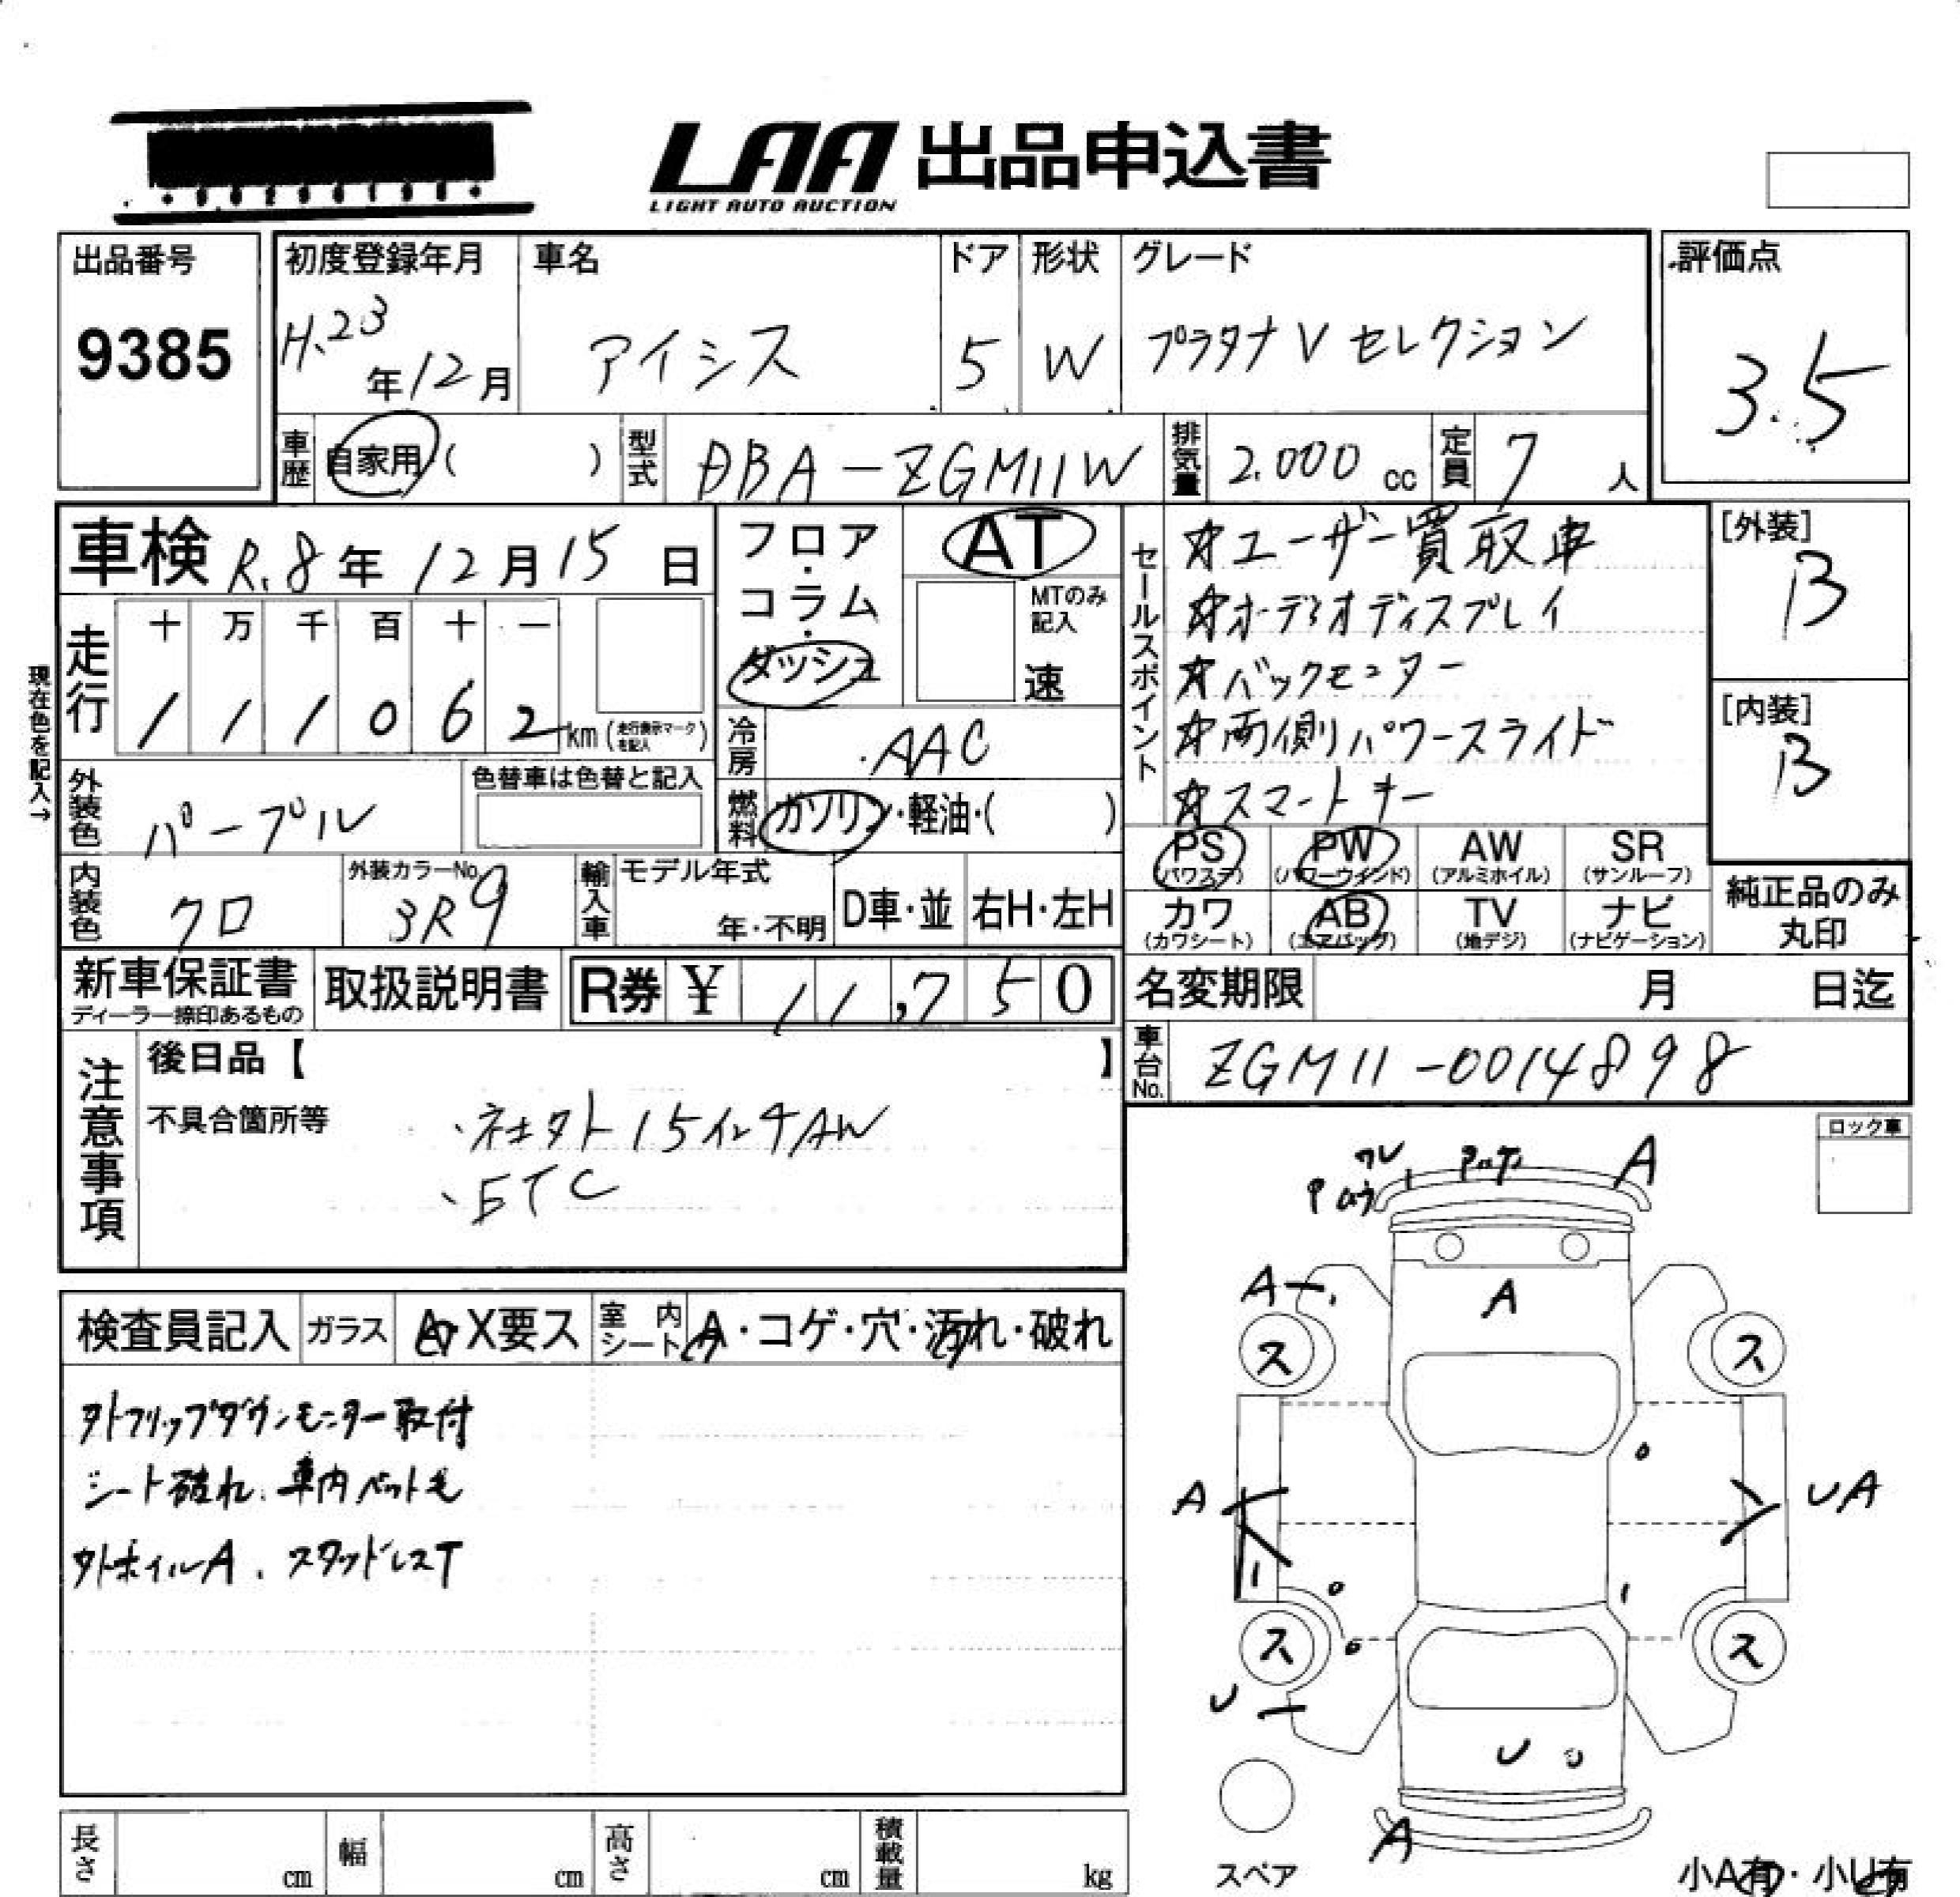 LAA 出品申込書
LIGHT AUTO AUCTION
出品番号
9385
初度登録年月
H.23年12月
車名
アイシス
ドア
5
形状
W
グレード
プラタナ V セレクション
評価点
3.5
車歴
自家用 ( )
型式
DBA-ZGM11W
排気量
2.000 cc
定員
7人
車検 R.8年12月15日
現在色を記入→
走行
十 万 千 百 十 一
1 1 1 0 6 2 km (走行表示マークを記入)
フロア・コラム・ダッシュ
AT
MTのみ記入
速
冷房
AAC
燃料
ガソリン・軽油・( )
外装色
パープル
色替車は色替と記入
内装色
クロ
外装カラーNo.
3R9
輸入車
モデル年式
年・不明
D車・並
右H・左H
セールスポイント
☆ユーザー買取車
☆オーディオディスプレイ
☆バックモニター
☆両側パワースライド
☆スマートキー
[外装]
B
[内装]
B
PS (パワステ)
PW (パワーウインド)
AW (アルミホイル)
SR (サンルーフ)
カワ (カワシート)
AB (エアバッグ)
TV (地デジ)
ナビ (ナビゲーション)
純正品のみ丸印
新車保証書
ディーラー捺印あるもの
取扱説明書
R券 ¥ 11,750
名変期限 月 日迄
車台No.
ZGM11-0014898
注意事項
後日品【 】
不具合箇所等
・社外15インチAW
・ETC
ロック車
検査員記入
ガラス
A・X要ス
室内シート
A・コゲ・穴・汚れ・破れ
外フリップダウンモニター取付
シート破れ、車内ペット毛
外ホイルA、スタッドレスT
ワレ
A
A
A
ス
ス
A
UA
ス
ス
U
U
A
スペア
小A有・小U有
長さ cm
幅 cm
高さ cm
積載量 kg